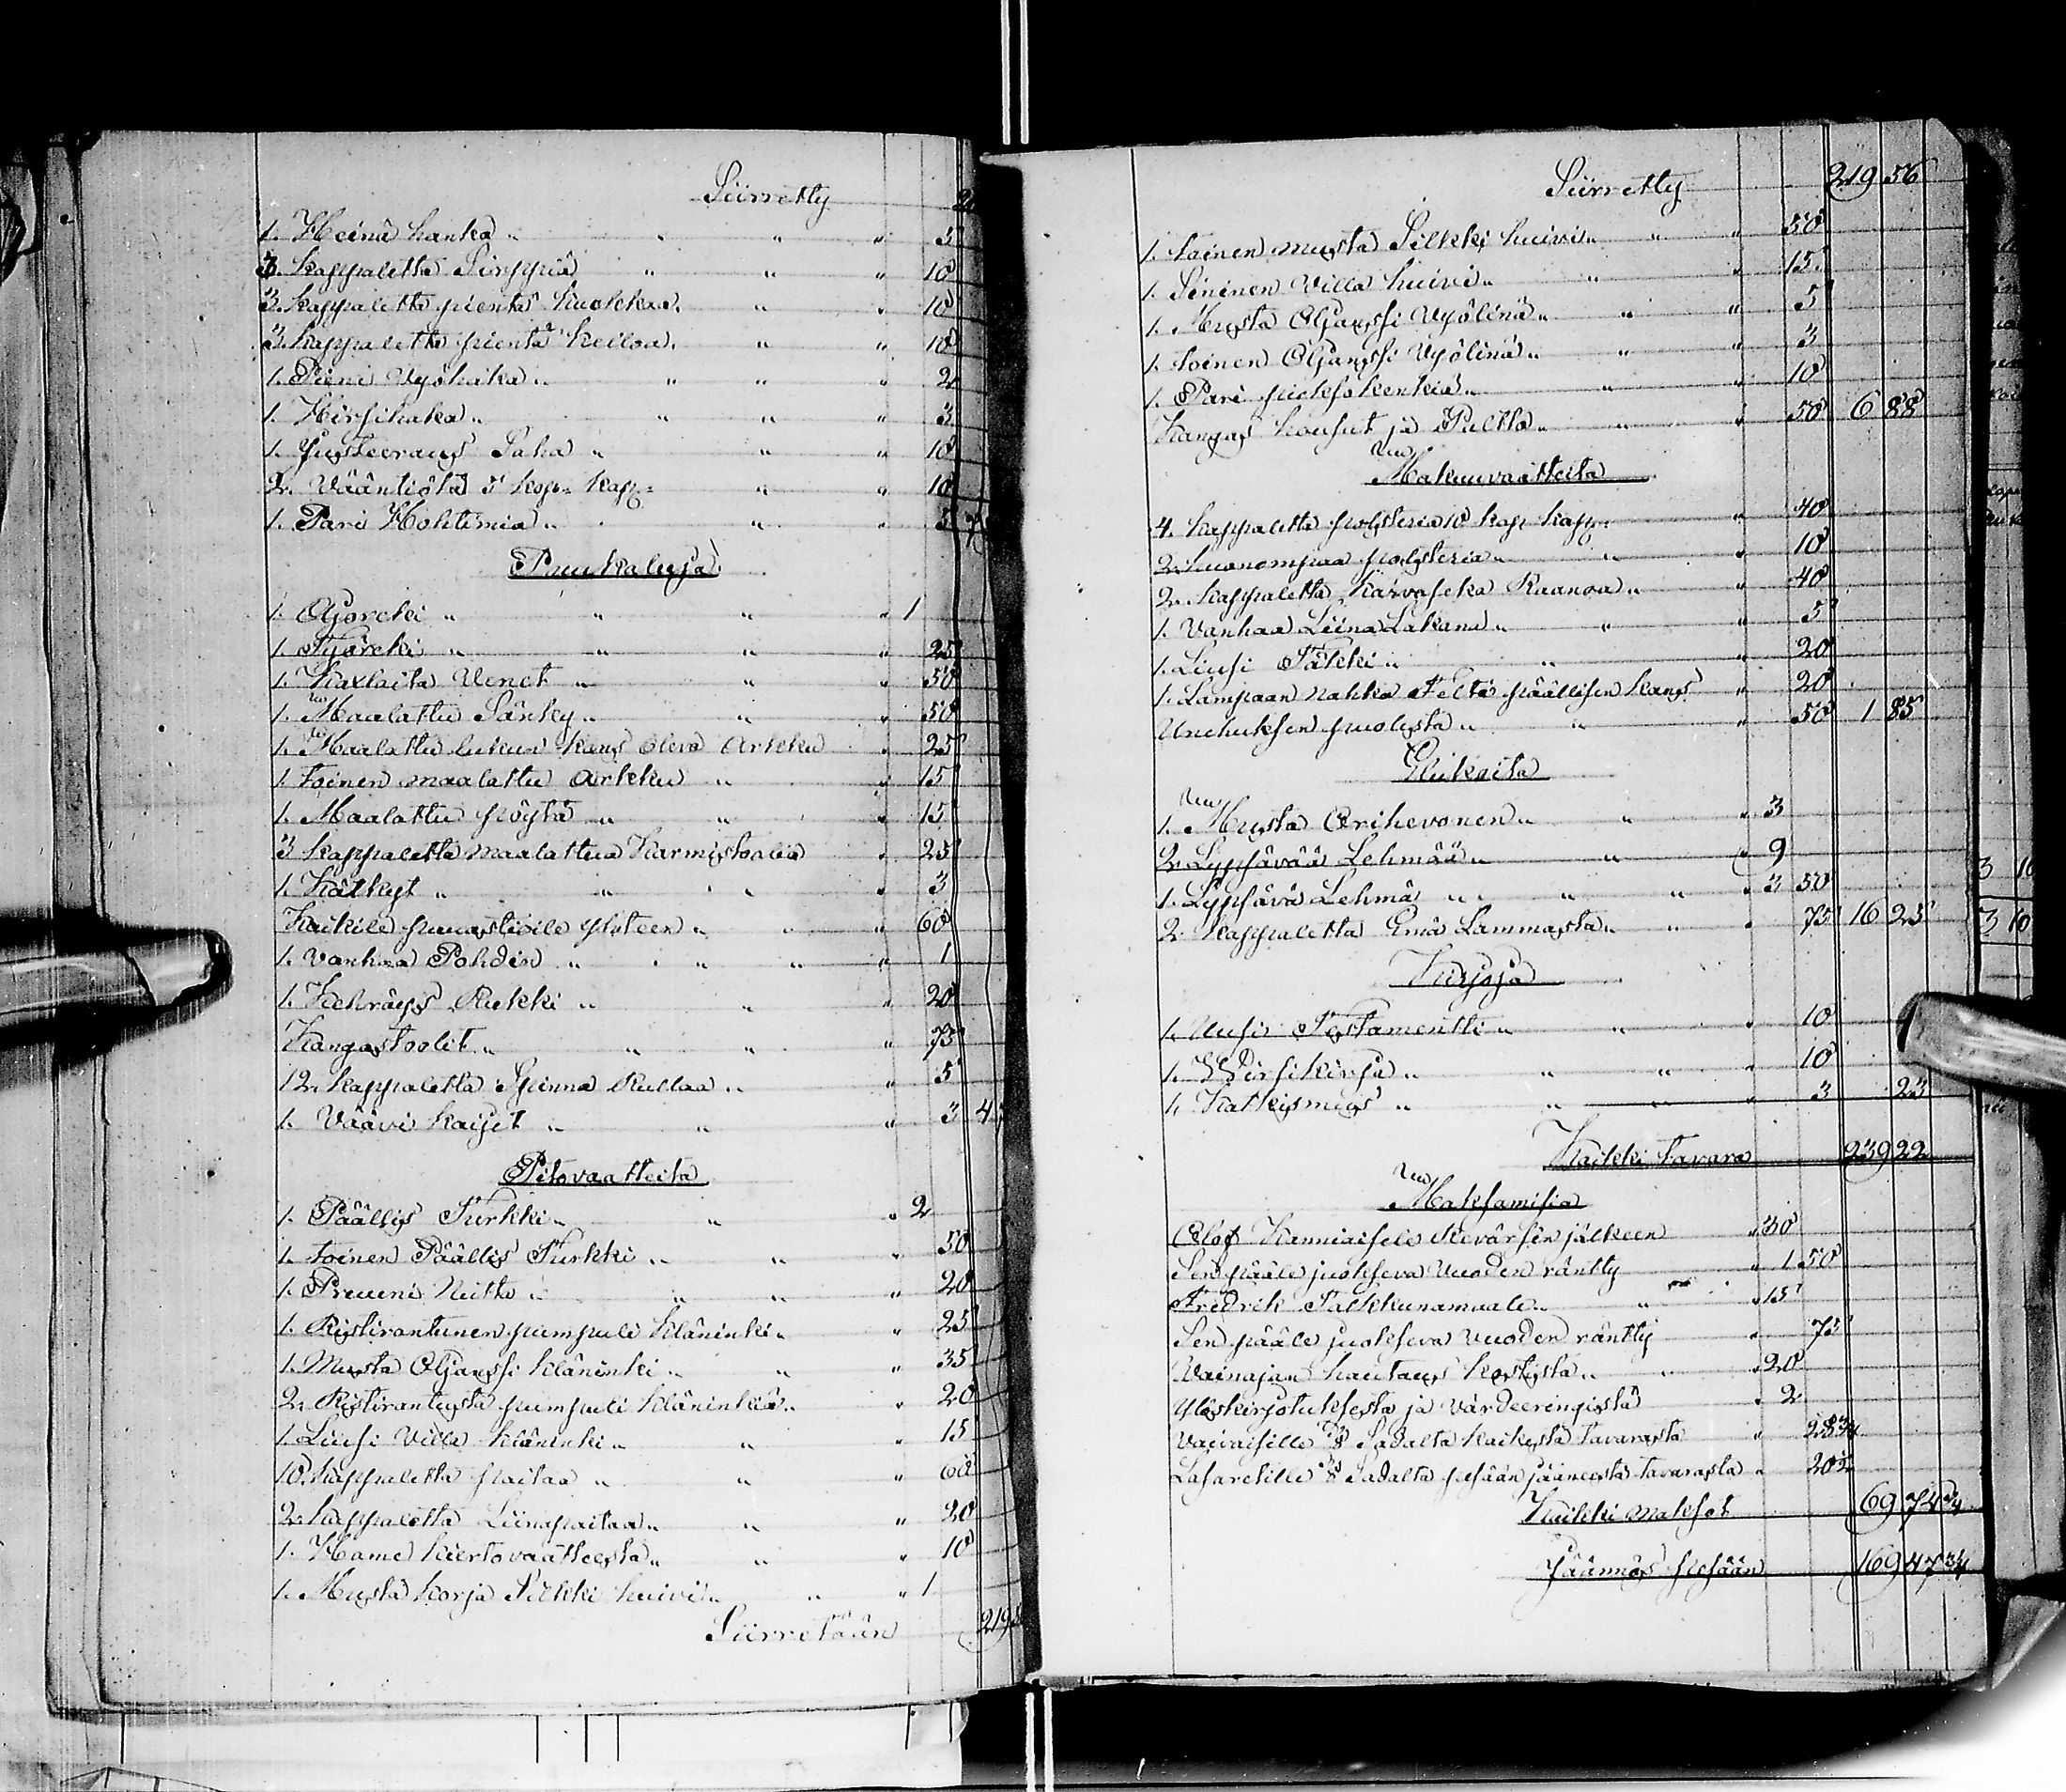 Siirretty 2
1. Heinä hanka „ „ „ „ 3
3. kappaletta Sirppiä „ „ „ 10
3. kappaletta pientä kuokkaa „ „ 10
3. kappaletta pientä kelloa „ „ 10
1. Pieni Vyöhaka „ „ „ „ 2
1. Hirsihaka „ „ „ „ 3
1. Justeeraus Saha „ „ „ 10
2. Vääntiötä 5 kop. kap. „ „ 10
1. Pari Hohtimia „ „ „ 5
Puukaluja
1. Ajoreki „ „ „ „ 1
1. Työreki „ „ „ „ 25
1. Kaxlaita Venet „ „ „ 50
1. Maalattu Sänky „ „ „ 50
1. Maalattu lukun kans oleva Arkku „ 25
1. toinen maalattu arkku „ „ 15
1. Maalattu pöytä „ „ „ 15
3 kappaletta maalattua Karmistoolia „ 25
1. Kätkyt „ „ „ „ 3
Kaikile puuastioile yhteen „ „ „ 60
1. vanhaa Pohdin „ „ „ „ 1
1. Kehräys Rukki „ „ „ 20
Kangastoolit „ „ „ „ 75
12. kappaletta Spinna Rullaa „ „ 5
1. Väävi kaijet „ „ „ 3 4
Pitovaatteita
1. Päällis Turkki „ „ „ 2
1. toinen Päällis Turkki „ „ „ 50
1. Pruuni Nutto „ „ „ „ 20
1. Ristirantunen pumpuli kläninki „ „ 25
1. Musta Oljanssi kläninki „ „ „ 35
2. Ristirantusta pumpuli kläninkiä „ „ 20
1. Liusi Villa kläninki „ „ „ 15
10. kappaletta paitaa „ „ „ 60
2. kappaletta Liinapaitaa „ „ „ 20
1. Hame kiertovaatteesta „ „ „ 10
1. Musta korja Silkki huivi „ „ „ 1
Siirretään 219
Siirretty 219 56
1. toinen musta Silkki huivi „ „ „ 50
1. Sininen Villa huivi „ „ „ 15
1. Musta Oljanssi Vyölinä „ „ „ 5
1. toinen Oljanssi Vyölinä „ „ „ 3
1. Pari pieksokenkiä „ „ „ 10
Kangas housut ja Pultto „ „ „ 50 6 88
Makuuvaatteita
4. kappaletta polsteria 10 kap kap. „ 40
2. huonompaa polsteria „ „ „ 10
2. kappaletta Karvaseka Raanoa „ „ 40
1. Vanhaa Liina Lakana „ „ „ 5
1. Liusi Täkki „ „ „ 20
1. Lampaan nahka Felti päällisen kans „ 20
Unehuksen puolesta „ „ „ 50 1 85
Elukoita
1. Musta Orihevonen „ „ „ 3
2. Lypsävää Lehmää „ „ „ 9
1. Lypsävä Lehmä „ „ „ „ 3 50
2. kappaletta Emä Lammasta „ „ „ 75 16 23
Kirjoja
1. Uusi Testamentti „ „ „ 10
1. Wirsikirja „ „ „ „ 10
1. Katkismus „ „ „ „ 3 23
Kaikki tavara 239 22
Maksamisia
Olof Hanniaisele Reverssin jälkeen „ 30
Sen pääle juokseva vuoden räntty „ 1 50
Fredrik Palkkunamaale „ „ „ 15
Sen pääle juokseva vuoden räntty „ 75
Vainajan hautaus kostista „ „ „ 20
Ylöskirjotuksesta ja värdeeringistä „ 2
Vaivaisille 1/8 Sadalta kaikesta tavarasta „
Lasaretille 1/8 Sadalta pesään jääneestä tavarasta „
Kaikki maksot 69 74 3/4
Jäännös pesään 169 47 3/4